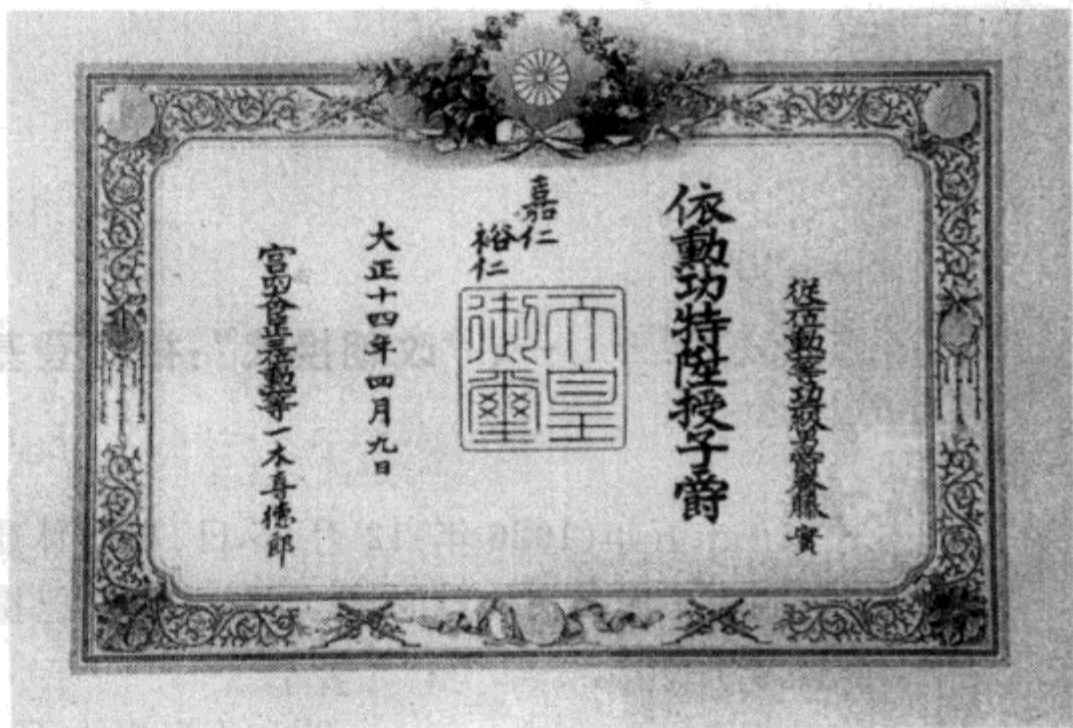 從二位勲一等功二級男爵齋藤實
依勲功特陞授子爵
嘉仁
裕仁
天皇御璽
大正十四年四月九日
宮内大臣正三位勲一等一木喜徳郎